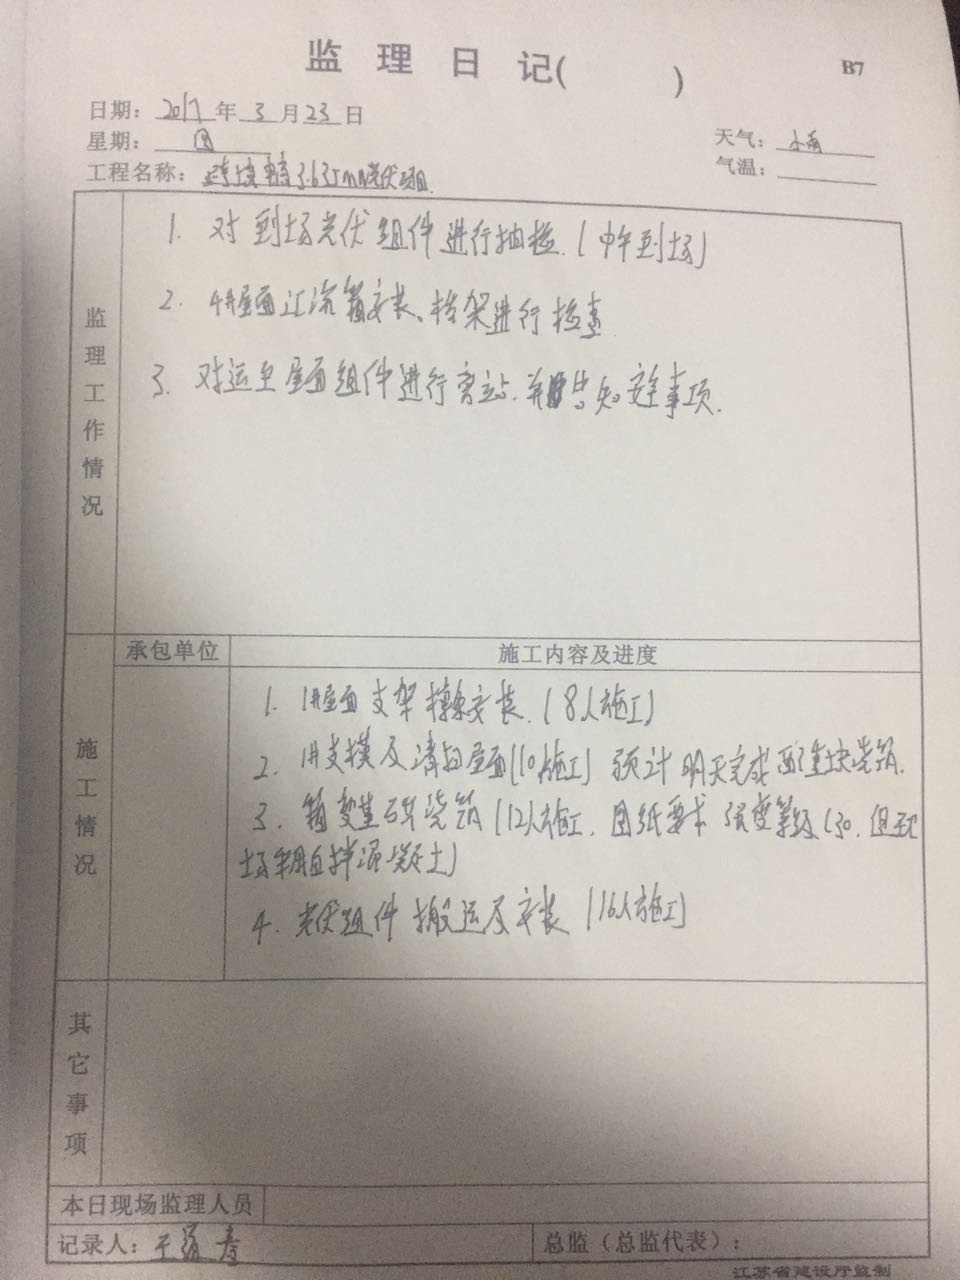 监理日记( )
B7
日期：2017年3月23日
星期：四
天气：小雨
工程名称：3.63 光伏项目
气温：
监理工作情况
1. 对到场光伏组件进行抽检.(中午到场)
2. 4#屋面汇流箱安装、桥架进行检查
3. 对运至屋面组件进行旁站.并告知安全事项.
承包单位
施工内容及进度
施工情况
1. 1#屋面支架檩条安装.(8人施工)
2. 1#支模及清扫屋面(10人施工)预计明天完成 浇筑.
3. 箱变基础浇筑(12人施工.图纸要求强度等级C30.但现
场采用自拌混凝土)
4. 光伏组件搬运及安装(16人施工)
其它事项
本日现场监理人员
记录人：
总监（总监代表）：
江苏省建设厅监制